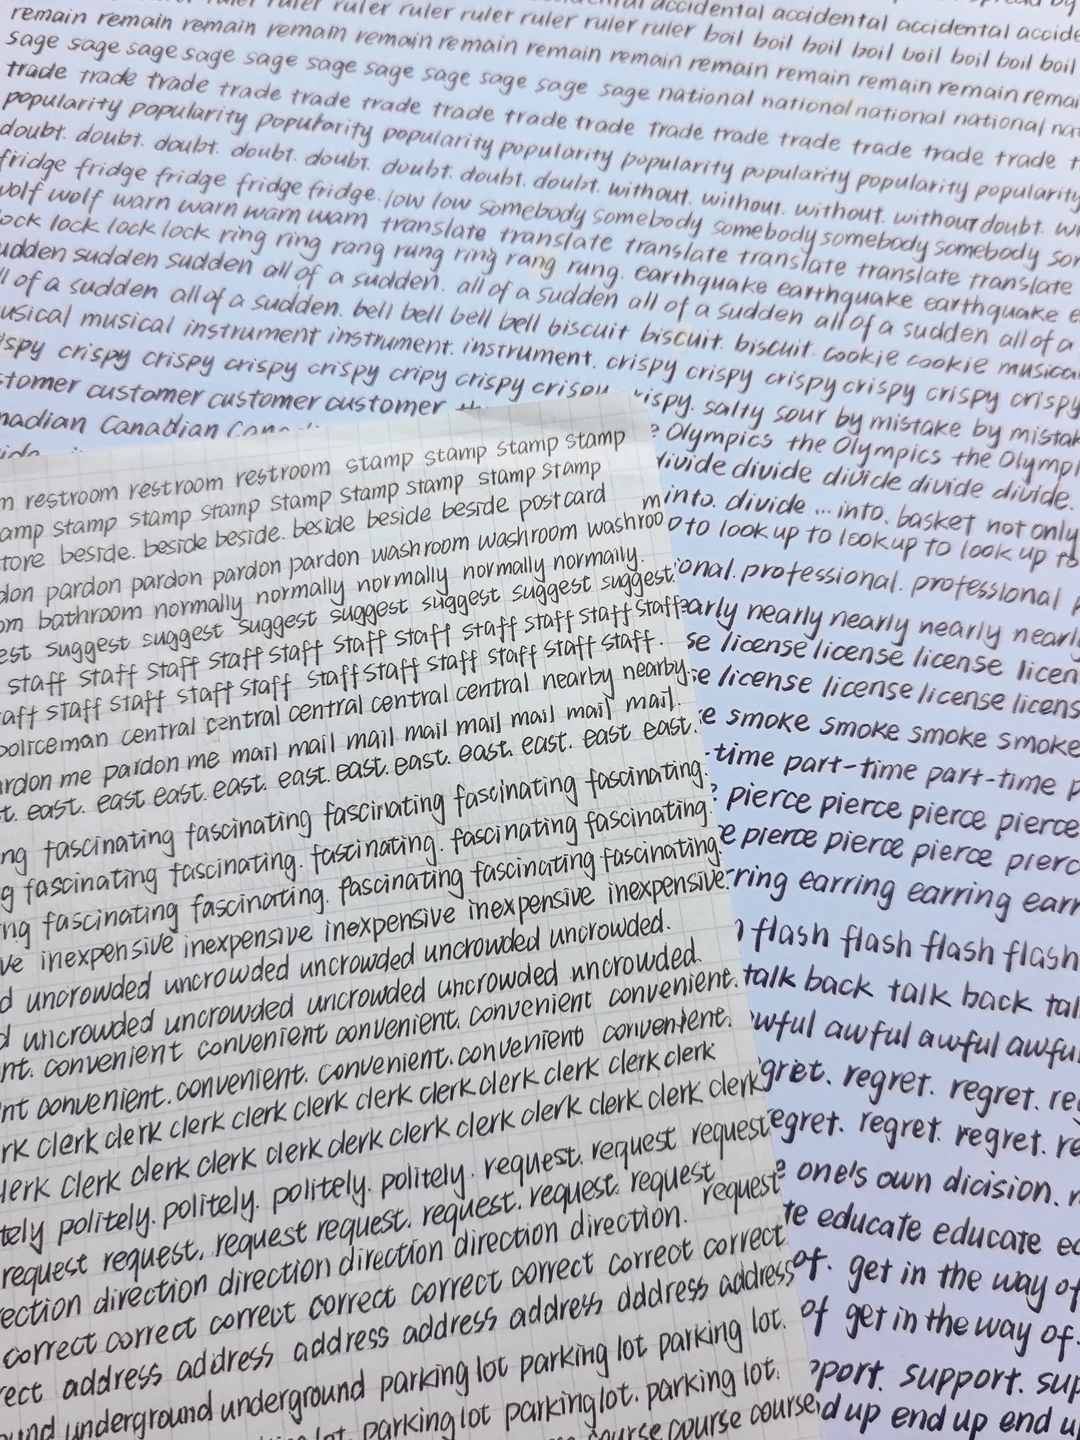 ruler ruler ruler ruler ruler ruler ruler accidental accidental accidental
remain remain remain remain remain remain remain remain remain remain remain remain
boil boil boil boil boil boil boil
sage sage sage sage sage sage sage sage sage sage sage national national national national
trade trade trade trade trade trade trade trade trade trade trade trade trade trade trade
popularity popularity popularity popularity popularity popularity popularity popularity popularity
doubt. doubt. doubt. doubt. doubt. doubt. doubt. doubt. without. without. without. without doubt.
fridge fridge fridge fridge fridge. low low somebody somebody somebody somebody somebody
wolf warn warn warn warn translate translate translate translate translate translate
lock lock lock ring ring rang rung ring rang rung. earthquake earthquake earthquake
sudden sudden all of a sudden. all of a sudden all of a sudden all of a sudden all of a
of a sudden all of a sudden. bell bell bell bell biscuit biscuit. biscuit. cookie cookie
musical instrument instrument. instrument. crispy crispy crispy crispy crispy crispy
crispy crispy crispy cripy crispy crispy crispy. salty sour by mistake by
customer customer customer the Olympics the Olympics the
Canadian Canadian divide divide divide divide divide.
into. divide ... into. basket not only
to look up to look up to look up
professional. professional.
nearly nearly nearly nearly
license license license
license license license
smoke smoke smoke
part-time part-time
pierce pierce pierce
pierce pierce pierce
earring earring
flash flash flash
talk back talk back
awful awful
regret. regret.
regret. regret.
one's own dicision.
educate educate
of. get in the way of
of get in the way of.
support.
end up end up
restroom restroom restroom stamp stamp stamp stamp
stamp stamp stamp stamp stamp stamp stamp stamp
beside. beside beside. beside beside beside postcard
pardon pardon pardon pardon washroom washroom
bathroom normally normally normally normally normally.
suggest suggest suggest suggest suggest suggest
staff staff staff staff staff staff staff staff staff
staff staff staff staff staff staff staff staff staff staff.
policeman central central central central nearby nearby.
pardon me mail mail mail mail mail mail mail.
east. east east. east. east. east. east. east. east. east east.
fascinating fascinating fascinating fascinating fascinating.
fascinating fascinating. fascinating. fascinating fascinating.
fascinating fascinating. fascinating fascinating fascinating.
inexpensive inexpensive inexpensive inexpensive inexpensive.
uncrowded uncrowded uncrowded uncrowded uncrowded.
uncrowded uncrowded uncrowded uncrowded uncrowded.
convenient convenient convenient. convenient convenient.
convenient. convenient. convenient. convenient convenient.
clerk clerk clerk clerk clerk clerk clerk clerk clerk clerk
clerk clerk clerk clerk clerk clerk clerk clerk clerk
politely. politely. politely. politely. request. request request
request request. request request. request. request. request
request
direction direction direction direction direction.
correct correct correct correct correct correct correct
address address address address address address
underground underground parking lot parking lot parking lot.
parking lot parking lot. parking lot.
course course course